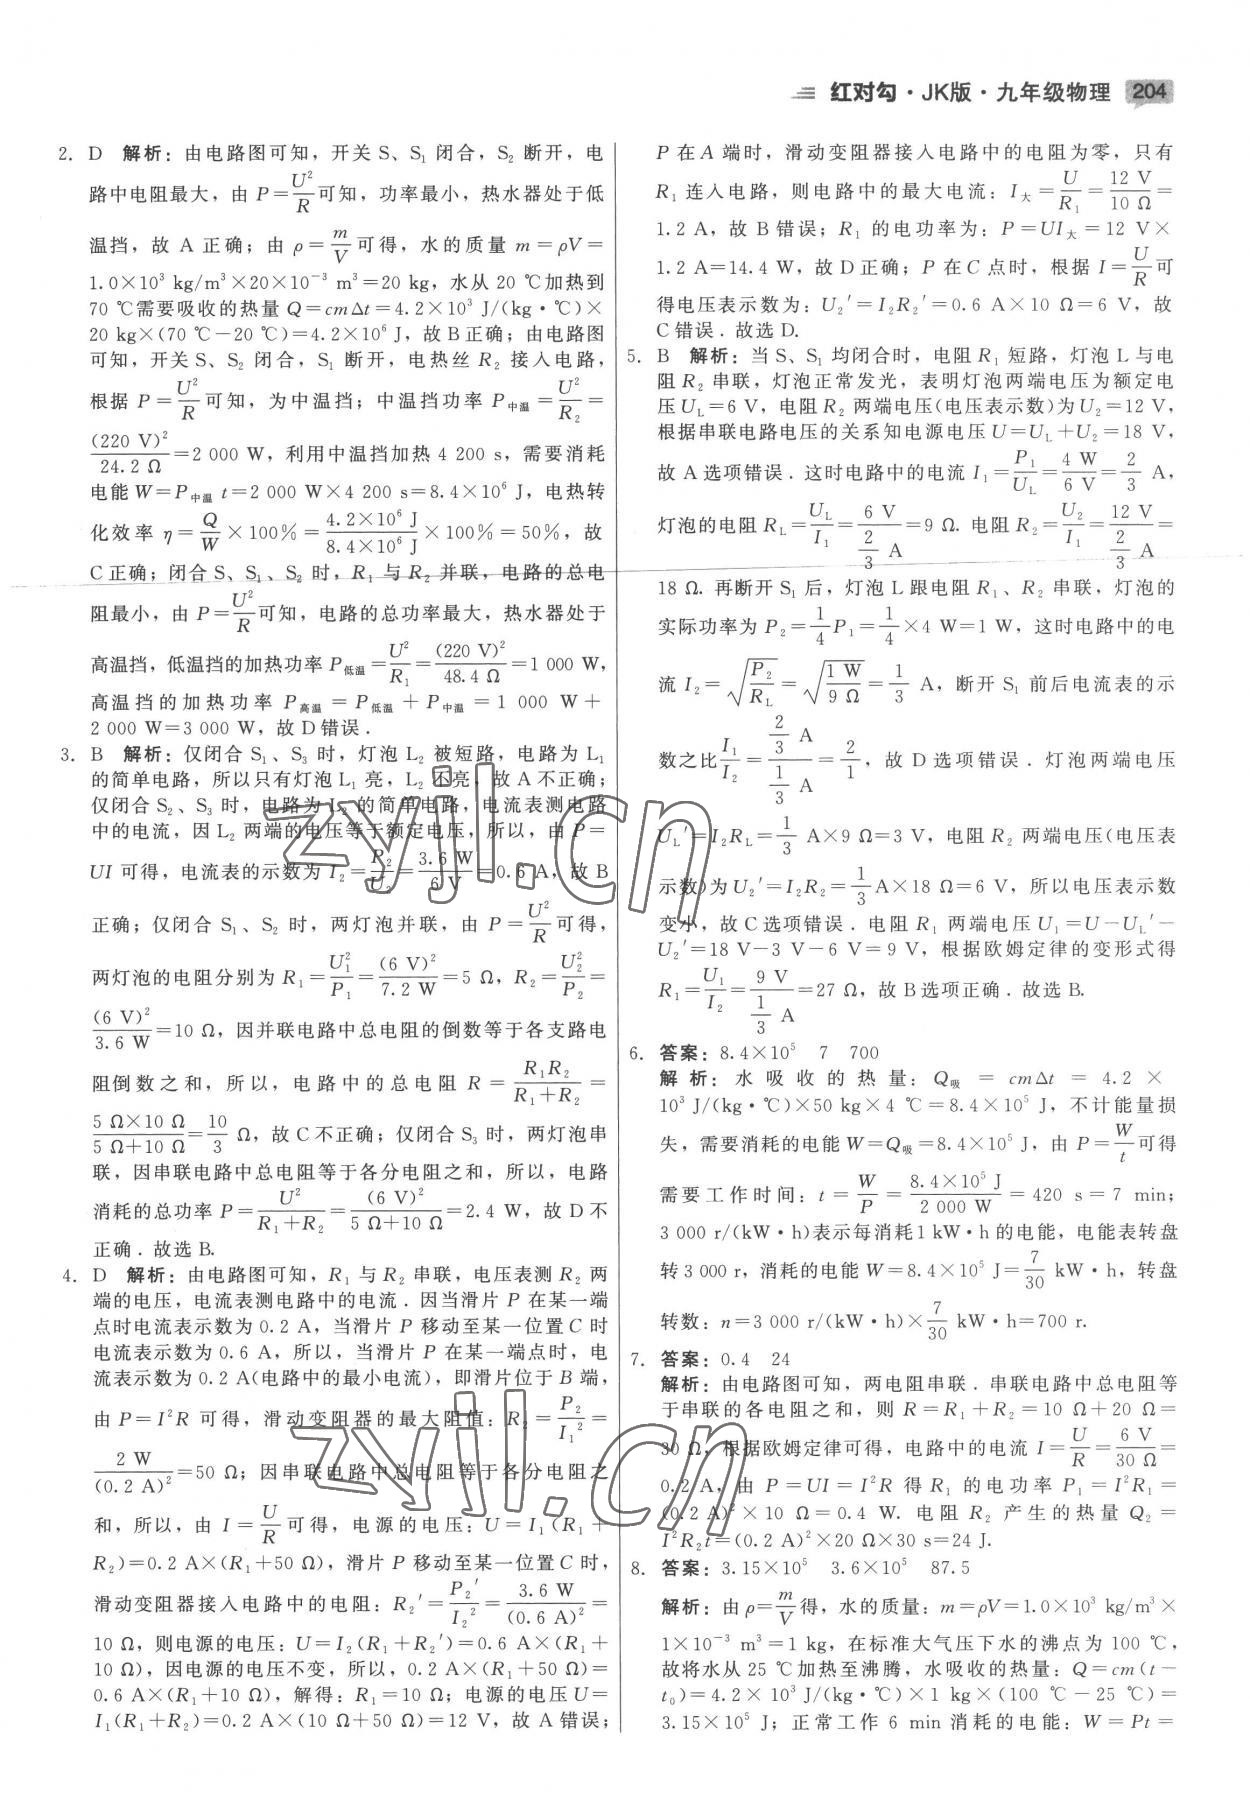 红对勾·JK版·九年级物理 204
2. D 解析：由电路图可知，开关 S、S₁ 闭合，S₂ 断开，电
路中电阻最大，由 P=U²/R可知，功率最小，热水器处于低
温挡，故 A 正确；由 ρ=m/V可得，水的质量 m=ρV=
1.0×10³ kg/m³×20×10⁻³ m³=20 kg，水从 20 ℃加热到
70 ℃需要吸收的热量 Q=cmΔt=4.2×10³ J/(kg·℃)×
20 kg×(70 ℃-20 ℃)=4.2×10⁶ J，故B正确；由电路图
可知，开关 S、S₂ 闭合，S₁ 断开，电热丝 R₂ 接入电路，
根据 P=U²/R可知，为中温挡；中温挡功率 P中温=U²/R₂=
(220 V)²/24.2 Ω=2 000 W，利用中温挡加热 4 200 s，需要消耗
电能 W=P中温 t=2 000 W×4 200 s=8.4×10⁶ J，电热转
化效率 η=Q/W×100%=4.2×10⁶ J/8.4×10⁶ J×100%=50%，故
C正确；闭合 S、S₁、S₂ 时，R₁ 与 R₂ 并联，电路的总电
阻最小，由 P=U²/R可知，电路的总功率最大，热水器处于
高温挡，低温挡的加热功率 P低温=U²/R₁=(220 V)²/48.4 Ω=1 000 W，
高温挡的加热功率 P高温=P低温+P中温=1 000 W+
2 000 W=3 000 W，故 D错误．
3. B 解析：仅闭合 S₁、S₃ 时，灯泡 L₂ 被短路，电路为 L₁
的简单电路，所以只有灯泡 L₁ 亮，L₂ 不亮，故 A 不正确；
仅闭合 S₂、S₃ 时，电路为 L₂ 的简单电路，电流表测电路
中的电流，因 L₂ 两端的电压等于额定电压，所以，由 P=
UI 可得，电流表的示数为 I₂=P₂/U₂=3.6 W/6 V=0.6 A，故 B
正确；仅闭合 S₁、S₂ 时，两灯泡并联，由 P=U²/R可得，
两灯泡的电阻分别为 R₁=U₁²/P₁=(6 V)²/7.2 W=5 Ω，R₂=U₂²/P₂=
(6 V)²/3.6 W=10 Ω，因并联电路中总电阻的倒数等于各支路电
阻倒数之和，所以，电路中的总电阻 R=R₁R₂/(R₁+R₂)=
(5 Ω×10 Ω)/(5 Ω+10 Ω)=10/3 Ω，故 C不正确；仅闭合 S₃ 时，两灯泡串
联，因串联电路中总电阻等于各分电阻之和，所以，电路
消耗的总功率 P=U²/(R₁+R₂)=(6 V)²/(5 Ω+10 Ω)=2.4 W，故 D不
正确．故选B.
4. D 解析：由电路图可知，R₁ 与 R₂ 串联，电压表测 R₂ 两
端的电压，电流表测电路中的电流．因当滑片 P 在某一端
点时电流表示数为 0.2 A，当滑片 P 移动至某一位置C 时
电流表示数为 0.6 A，所以，当滑片 P 在某一端点时，电
流表示数为 0.2 A(电路中的最小电流)，即滑片位于 B 端，
由 P=I²R 可得，滑动变阻器的最大阻值：R₂=P₂/I₁²=
2 W/(0.2 A)²=50 Ω；因串联电路中总电阻等于各分电阻之
和，所以，由 I=U/R可得，电源的电压：U=I₁(R₁+
R₂)=0.2 A×(R₁+50 Ω)，滑片 P 移动至某一位置C 时，
滑动变阻器接入电路中的电阻：R₂′=P₂′/I₂²=3.6 W/(0.6 A)²=
10 Ω，则电源的电压：U=I₂(R₁+R₂′)=0.6 A×(R₁+
10 Ω)，因电源的电压不变，所以，0.2 A×(R₁+50 Ω)=
0.6 A×(R₁+10 Ω)，解得：R₁=10 Ω；电源的电压U=
I₁(R₁+R₂)=0.2 A×(10 Ω+50 Ω)=12 V，故 A错误；
P 在A 端时，滑动变阻器接入电路中的电阻为零，只有
R₁ 连入电路，则电路中的最大电流：I大=U/R₁=12 V/10 Ω=
1.2 A，故 B错误；R₁ 的电功率为：P=UI大=12 V×
1.2 A=14.4 W，故D正确；P 在C 点时，根据 I=U/R可
得电压表示数为：U₂′=I₂R₂′=0.6 A×10 Ω=6 V，故
C错误．故选D.
5. B 解析：当 S、S₁ 均闭合时，电阻 R₁ 短路，灯泡 L 与电
阻 R₂ 串联，灯泡正常发光，表明灯泡两端电压为额定电
压U_L=6 V，电阻 R₂ 两端电压(电压表示数)为U₂=12 V，
根据串联电路电压的关系知电源电压 U=U_L+U₂=18 V，
故 A选项错误．这时电路中的电流 I₁=P₁/U_L=4 W/6 V=2/3 A，
灯泡的电阻 R_L=U_L/I₁=6 V/(2/3 A)=9 Ω. 电阻 R₂=U₂/I₁=12 V/(2/3 A)=
18 Ω. 再断开 S₁ 后，灯泡 L跟电阻 R₁、R₂ 串联，灯泡的
实际功率为 P₂=1/4P₁=1/4×4 W=1 W，这时电路中的电
流 I₂=√(P₂/R_L)=√(1 W/9 Ω)=1/3 A，断开 S₁ 前后电流表的示
数之比I₁/I₂=(2/3 A)/(1/3 A)=2/1，故 D 选项错误．灯泡两端电压
U_L′=I₂R_L=1/3 A×9 Ω=3 V，电阻 R₂ 两端电压(电压表
示数)为U₂′=I₂R₂=1/3A×18 Ω=6 V，所以电压表示数
变小，故C选项错误．电阻 R₁ 两端电压 U₁=U-U_L′-
U₂′=18 V-3 V-6 V=9 V，根据欧姆定律的变形式得
R₁=U₁/I₂=9 V/(1/3 A)=27 Ω，故B选项正确．故选B.
6. 答案：8.4×10⁵ 7 700
解析：水吸收的热量：Q吸=cmΔt=4.2×
10³ J/(kg·℃)×50 kg×4 ℃=8.4×10⁵ J，不计能量损
失，需要消耗的电能 W=Q吸=8.4×10⁵ J，由 P=W/t可得
需要工作时间：t=W/P=8.4×10⁵ J/2 000 W=420 s=7 min；
3 000 r/(kW·h)表示每消耗1 kW·h的电能，电能表转盘
转3 000 r，消耗的电能 W=8.4×10⁵ J=7/30 kW·h，转盘
转数：n=3 000 r/(kW·h)×7/30 kW·h=700 r.
7. 答案：0.4 24
解析：由电路图可知，两电阻串联．串联电路中总电阻等
于串联的各电阻之和，则 R=R₁+R₂=10 Ω+20 Ω=
30 Ω，根据欧姆定律可得，电路中的电流 I=U/R=6 V/30 Ω=
0.2 A，由 P=UI=I²R 得 R₁ 的电功率 P₁=I²R₁=
(0.2 A)²×10 Ω=0.4 W. 电阻 R₂ 产生的热量 Q₂=
I²R₂t=(0.2 A)²×20 Ω×30 s=24 J.
8. 答案：3.15×10⁵ 3.6×10⁵ 87.5
解析：由ρ=m/V得，水的质量：m=ρV=1.0×10³ kg/m³×
1×10⁻³ m³=1 kg，在标准大气压下水的沸点为 100 ℃，
故将水从 25 ℃加热至沸腾，水吸收的热量：Q=cm(t-
t₀)=4.2×10³ J/(kg·℃)×1 kg×(100 ℃-25 ℃)=
3.15×10⁵ J；正常工作 6 min 消耗的电能：W=Pt=
zyjl.cn
zyjl.cn